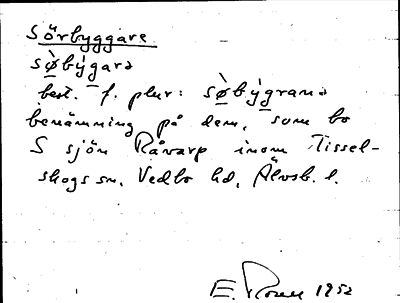 Sörbyggare
sø̀býgarə
best. f. plur: sø̀býgrana
benämning på dem, som bo
S sjön Råvarp inom Tissel-
skogs sn. Vedbo hd, Älvsb. l.
E. Rosen 1952